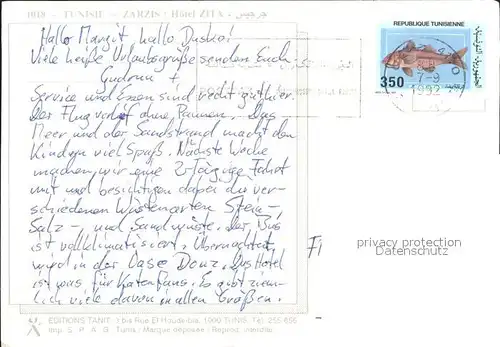 1918 - TUNISIE - ZARZIS : Hôtel ZITA - جرجيس
Hallo Margit hallo Dusko!
Viele heiße Urlaubsgrüße senden Euch
Gudrun +
Service und Essen sind recht gut hier.
Der Flug verlief ohne Pannen. Das
Meer und der Sandstrand macht den
Kindern viel Spaß. Nächste Woche
machen wir eine 2-Tägige Fahrt
mit und besichtigen dabei die ver-
schiedenen Wüstenarten Stein-,
Salz-, und Sandwüste. Der Bus
ist vollklimatisiert. Übernachtet
wird in der Oase Douz. Das Hotel
ist was für Katzenfans. Es gibt ziem-
lich viele davon in allen Größen.
REPUBLIQUE TUNISIENNE
350
7-9
1992
privacy protection
AnsichtskartenVersand.com
EDITIONS TANIT
1 bis Rue
1000 TUNIS. Tél. 255-656
Imp. S. P. A. G. Tunis / Marque déposée / Reprod. interdite